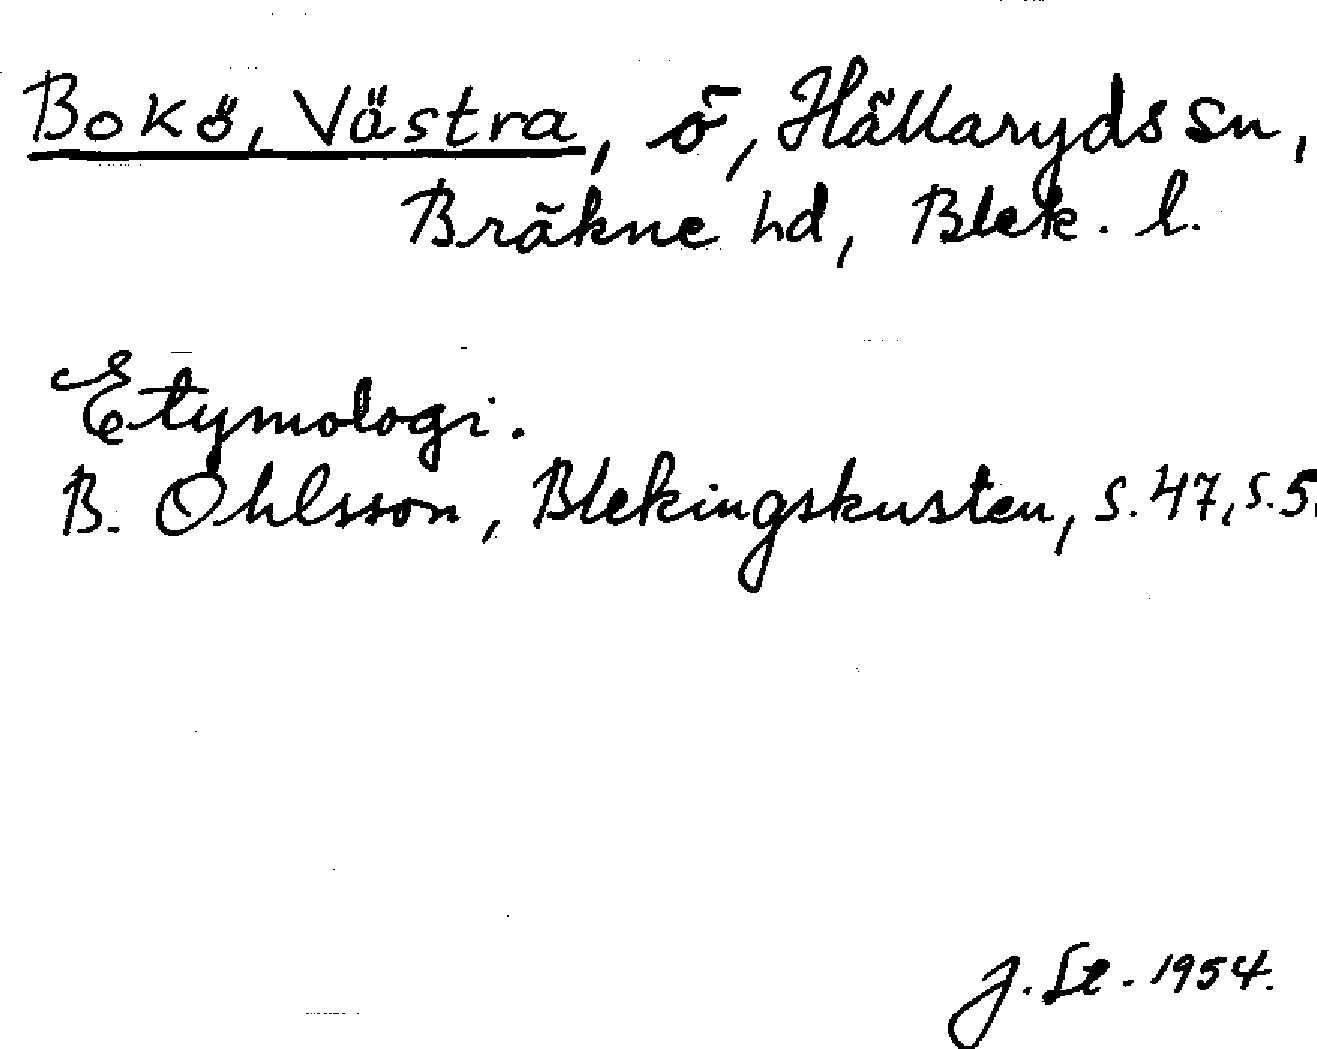 Bokö, Västra, ö, Hällaryds sn,
Bräkne hd, Blek. l.
Etymologi.
B. Ohlsson, Blekingskusten, s. 47, s. 5
J. St. 1954.